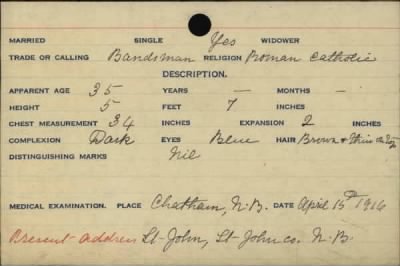 MARRIED SINGLE Yes WIDOWER
TRADE OR CALLING Bandsman RELIGION Roman Catholic
DESCRIPTION.
APPARENT AGE 35 YEARS — MONTHS —
HEIGHT 5 FEET 7 INCHES
CHEST MEASUREMENT 34 INCHES EXPANSION 2 INCHES
COMPLEXION Dark EYES Blue HAIR Brown & thin on Top
DISTINGUISHING MARKS Nil
MEDICAL EXAMINATION. PLACE Chatham, N.B. DATE April 15th 1916
Present address St. John, St. John co. N.B.